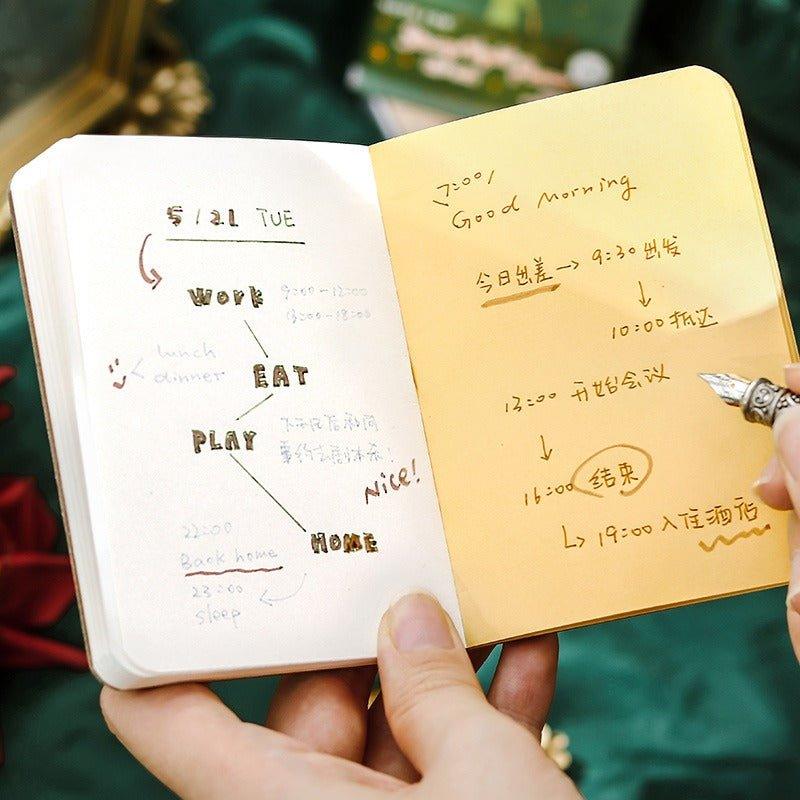 5/21 TUE
Work 9:00-12:00
13:00-18:00
lunch
dinner
EAT
PLAY
Nice!
HOME
22:00
Back home
23:00
sleep
7:00/
Good morning
今日出差→ 9:30 出发
↓
10:00 抵达
13:00 开始会议
↓
16:00 结束
↳ 19:00 入住酒店